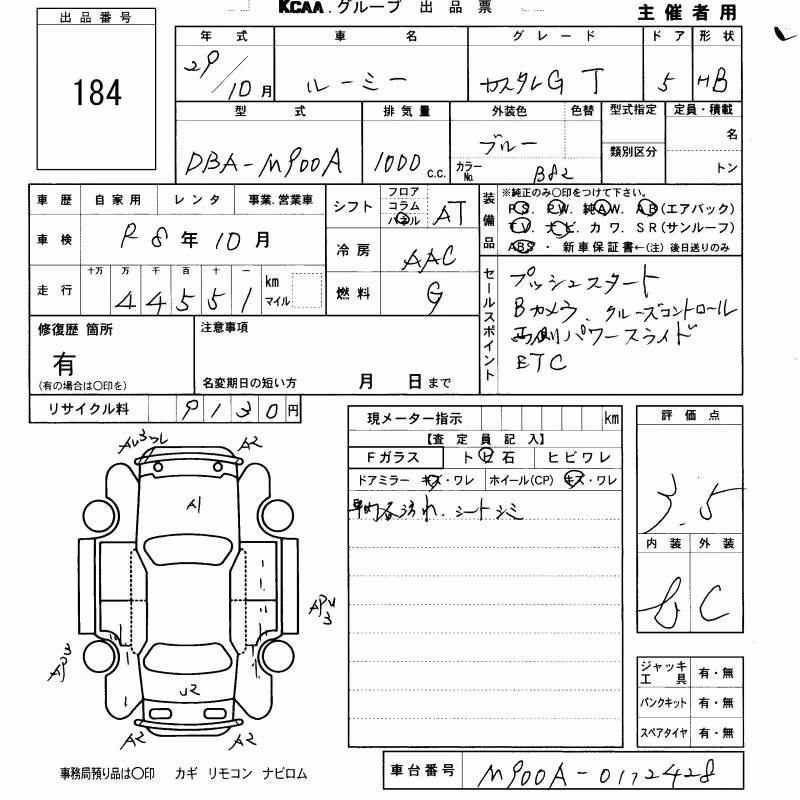 KCAA.グループ 出品票
主催者用
出品番号
184
年式 車名 グレード ドア 形状
29/10月 ルーミー カスタムG T 5 HB
型式 排気量 外装色 色替 型式指定 定員・積載
DBA-M900A 1000 c.c. ブルー カラーNo. B82 類別区分 名
トン
車歴 自家用 レンタ 事業.営業車
シフト フロア コラム パネル AT
装備品
※純正のみ○印をつけて下さい。
PS. PW. 純AW. AB(エアバック)
TV. ナビ. カワ. SR(サンルーフ)
ABS・新車保証書←(注)後日送りのみ
車検 R8年10月
冷房 AAC
走行 十万 万 千 百 十 一 km マイル
44551
燃料 G
セールスポイント
プッシュスタート
Bカメラ、クルーズコントロール
両側パワースライド
ETC
修復歴 箇所
有
(有の場合は○印を)
注意事項
名変期日の短い方 月 日まで
リサイクル料 9130円
現メーター指示 km
【査定員記入】
Fガラス トビ石 ヒビワレ
ドアミラー キズ・ワレ ホイール(CP) キズ・ワレ
車内各汚れ、シートシミ
評価点
3.5
内装 外装
C
A2
A1
U2
A2 A2
ジャッキ工具 有・無
パンクキット 有・無
スペアタイヤ 有・無
事務局預り品は○印 カギ リモコン ナビロム
車台番号 M900A-0172428